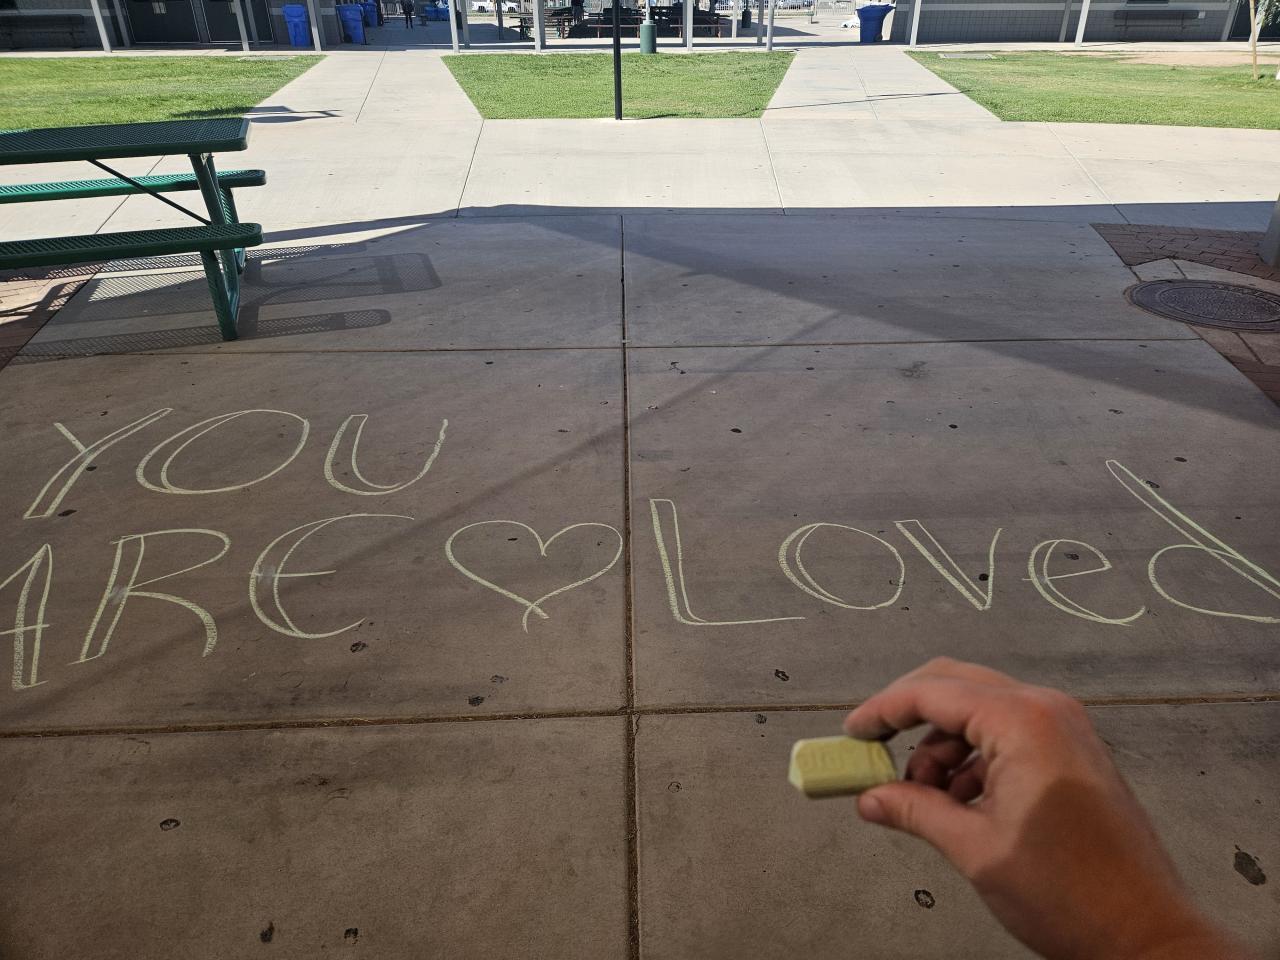 YOU
ARE ♡ Loved